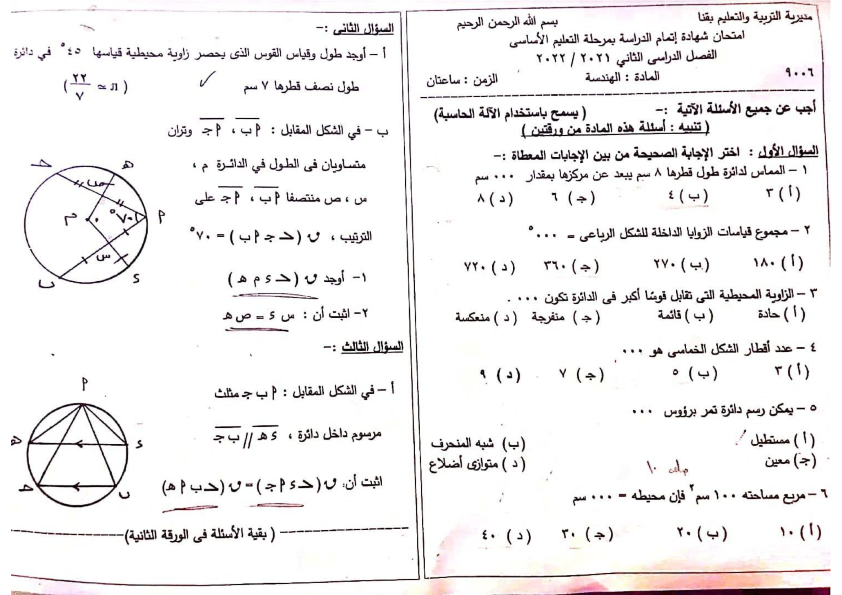 مديرية التربية والتعليم بقنا
بسم الله الرحمن الرحيم
امتحان شهادة إتمام الدراسة بمرحلة التعليم الأساسى
الفصل الدراسى الثاني ٢٠٢١ / ٢٠٢٢
٩٠٠٦ المادة : الهندسة الزمن : ساعتان
أجب عن جميع الأسئلة الآتية :- ( يسمح باستخدام الآلة الحاسبة)
( تنبيه : أسئلة هذه المادة من ورقتين )
السؤال الأول : اختر الإجابة الصحيحة من بين الإجابات المعطاة :-
١ – المماس لدائرة طول قطرها ٨ سم يبعد عن مركزها بمقدار ٠٠٠ سم
( أ ) ٣ ( ب ) ٤ ( جـ ) ٦ ( د ) ٨
٢ – مجموع قياسات الزوايا الداخلة للشكل الرباعى = ٠٠٠ °
( أ ) ١٨٠ ( ب ) ٢٧٠ ( جـ ) ٣٦٠ ( د ) ٧٢٠
٣ – الزاوية المحيطية التى تقابل قوسًا أكبر فى الدائرة تكون ٠٠٠ .
( أ ) حادة ( ب ) قائمة ( جـ ) منفرجة ( د ) منعكسة
٤ – عدد أقطار الشكل الخماسى هو ٠٠٠
( أ ) ٣ ( ب ) ٥ ( جـ ) ٧ ( د ) ٩
٥ – يمكن رسم دائرة تمر برؤوس ٠٠٠
( أ ) مستطيل ( ب ) شبه المنحرف
( جـ ) معين ( د ) متوازى أضلاع
١٠
٦ – مربع مساحته ١٠٠ سم٢ فإن محيطه = ٠٠٠ سم
( أ ) ١٠ ( ب ) ٢٠ ( جـ ) ٣٠ ( د ) ٤٠
السؤال الثانى :-
أ – أوجد طول وقياس القوس الذى يحصر زاوية محيطية قياسها ٤٥° في دائرة
طول نصف قطرها ٧ سم ( π ≃ ٢٢/٧ )
ب – في الشكل المقابل : أب ، أجـ وتران
متساويان فى الطول في الدائرة م ،
س ، ص منتصفا أب ، أجـ على
الترتيب ، ق ( ∠ جـ أ ب ) = ٧٠°
١- أوجد ق ( ∠ ء م هـ )
٢- اثبت أن : س ء = ص هـ
هـ جـ
ص
أ ٧٠° م
س
ء ب
السؤال الثالث :-
أ – في الشكل المقابل : أ ب جـ مثلث
مرسوم داخل دائرة ، ء هـ // ب جـ
اثبت أن: ق ( ∠ ء أ جـ ) = ق ( ∠ ب أ هـ )
أ
ء هـ
ب جـ
( بقية الأسئلة فى الورقة الثانية)